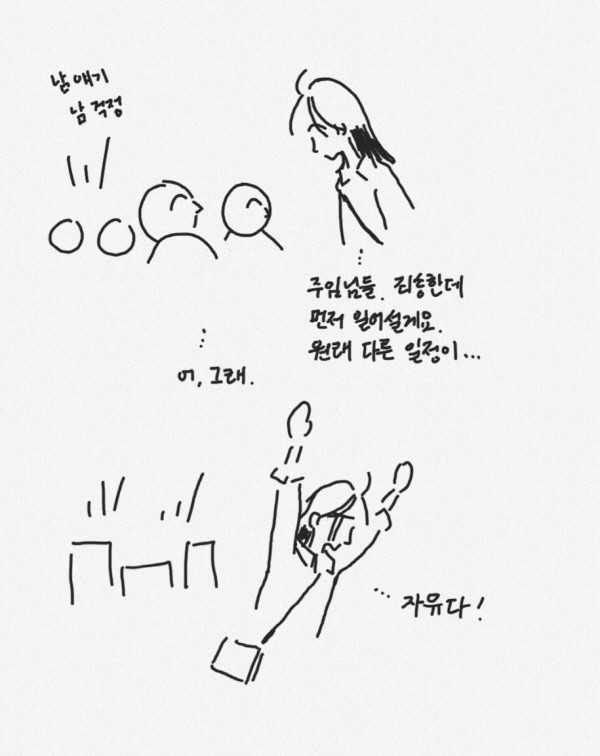 남 얘기
남 걱정
주임님들. 죄송한데
먼저 일어설게요.
원래 다른 일정이...
어, 그래.
자유다!